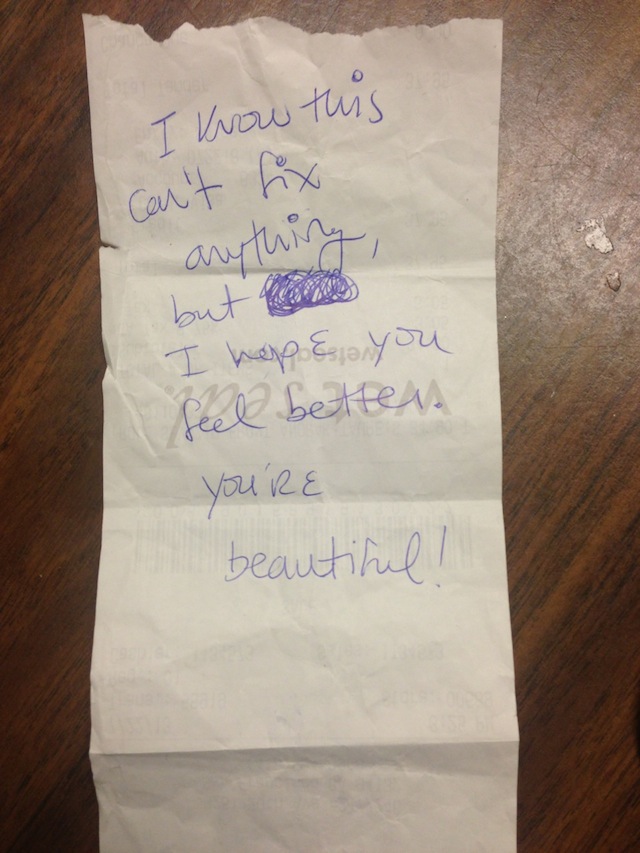 I know this
can't fix
anything,
but
I hope you
feel better.
you're
beautiful!